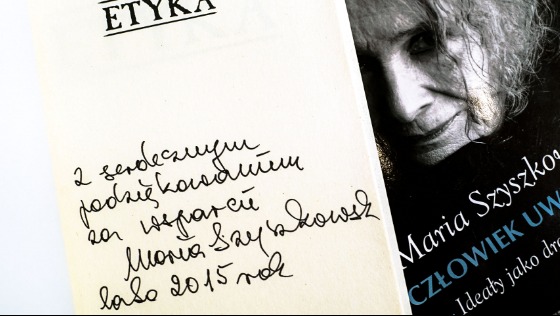 ETYKA
z serdecznym
podziękowaniem
za wsparcie
Maria Szyszkowsk
lato 2015 rok
Maria Szyszkow
CZŁOWIEK UW
Ideały jako dro